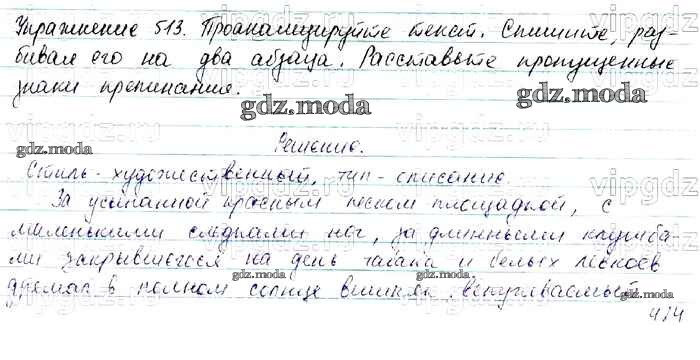 Упражнение 513. Проанализируйте текст. Спишите, раз-
бивая его на два абзаца. Расставьте пропущенные
знаки препинания.
gdz.moda
gdz.moda
gdz.moda
Решение.
Стиль - художественный, тип - описание.
За усыпанной красным песком площадкой, с
маленькими следками ног, за длинными клумба
ми закрывшегося на день табака и белых левкоев
gdz.moda
gdz.moda
gdz.moda
дремал в полном солнце
474